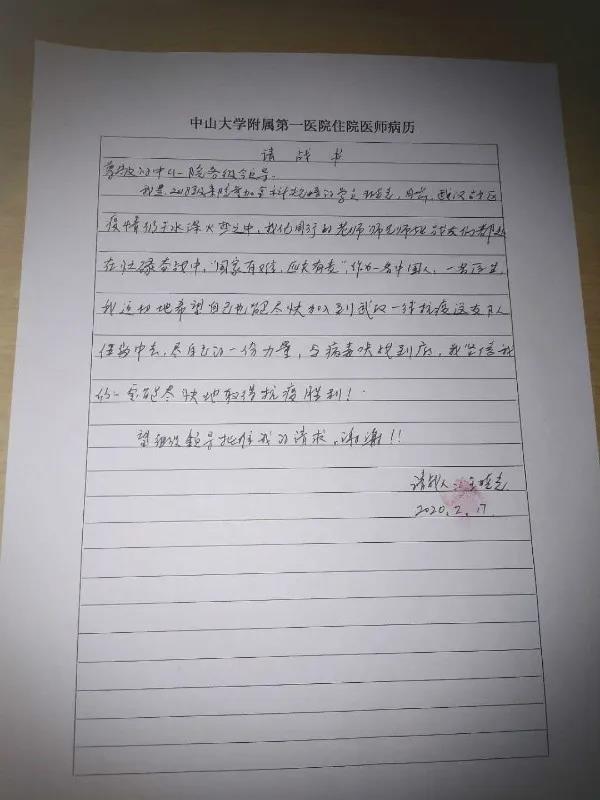 中山大学附属第一医院住院医师病历
请战书
尊敬的中山一院各级领导:
我是 级 培的学员 ,目前,武汉
疫情仍于水深火热之中,我们同行的老师师兄师姐 战友们都
在 奋战中,"国家有难,匹夫有责",作为一名中国人,一名医生,
我迫切地希望自己也能尽快加入到武汉一线抗疫
中去,尽自己的一份力量,与病毒决战到底,我坚信我
们一定能尽快地取得抗疫胜利!
望各级领导批准我的请求,谢谢!!
请战人:
2020.2.17.